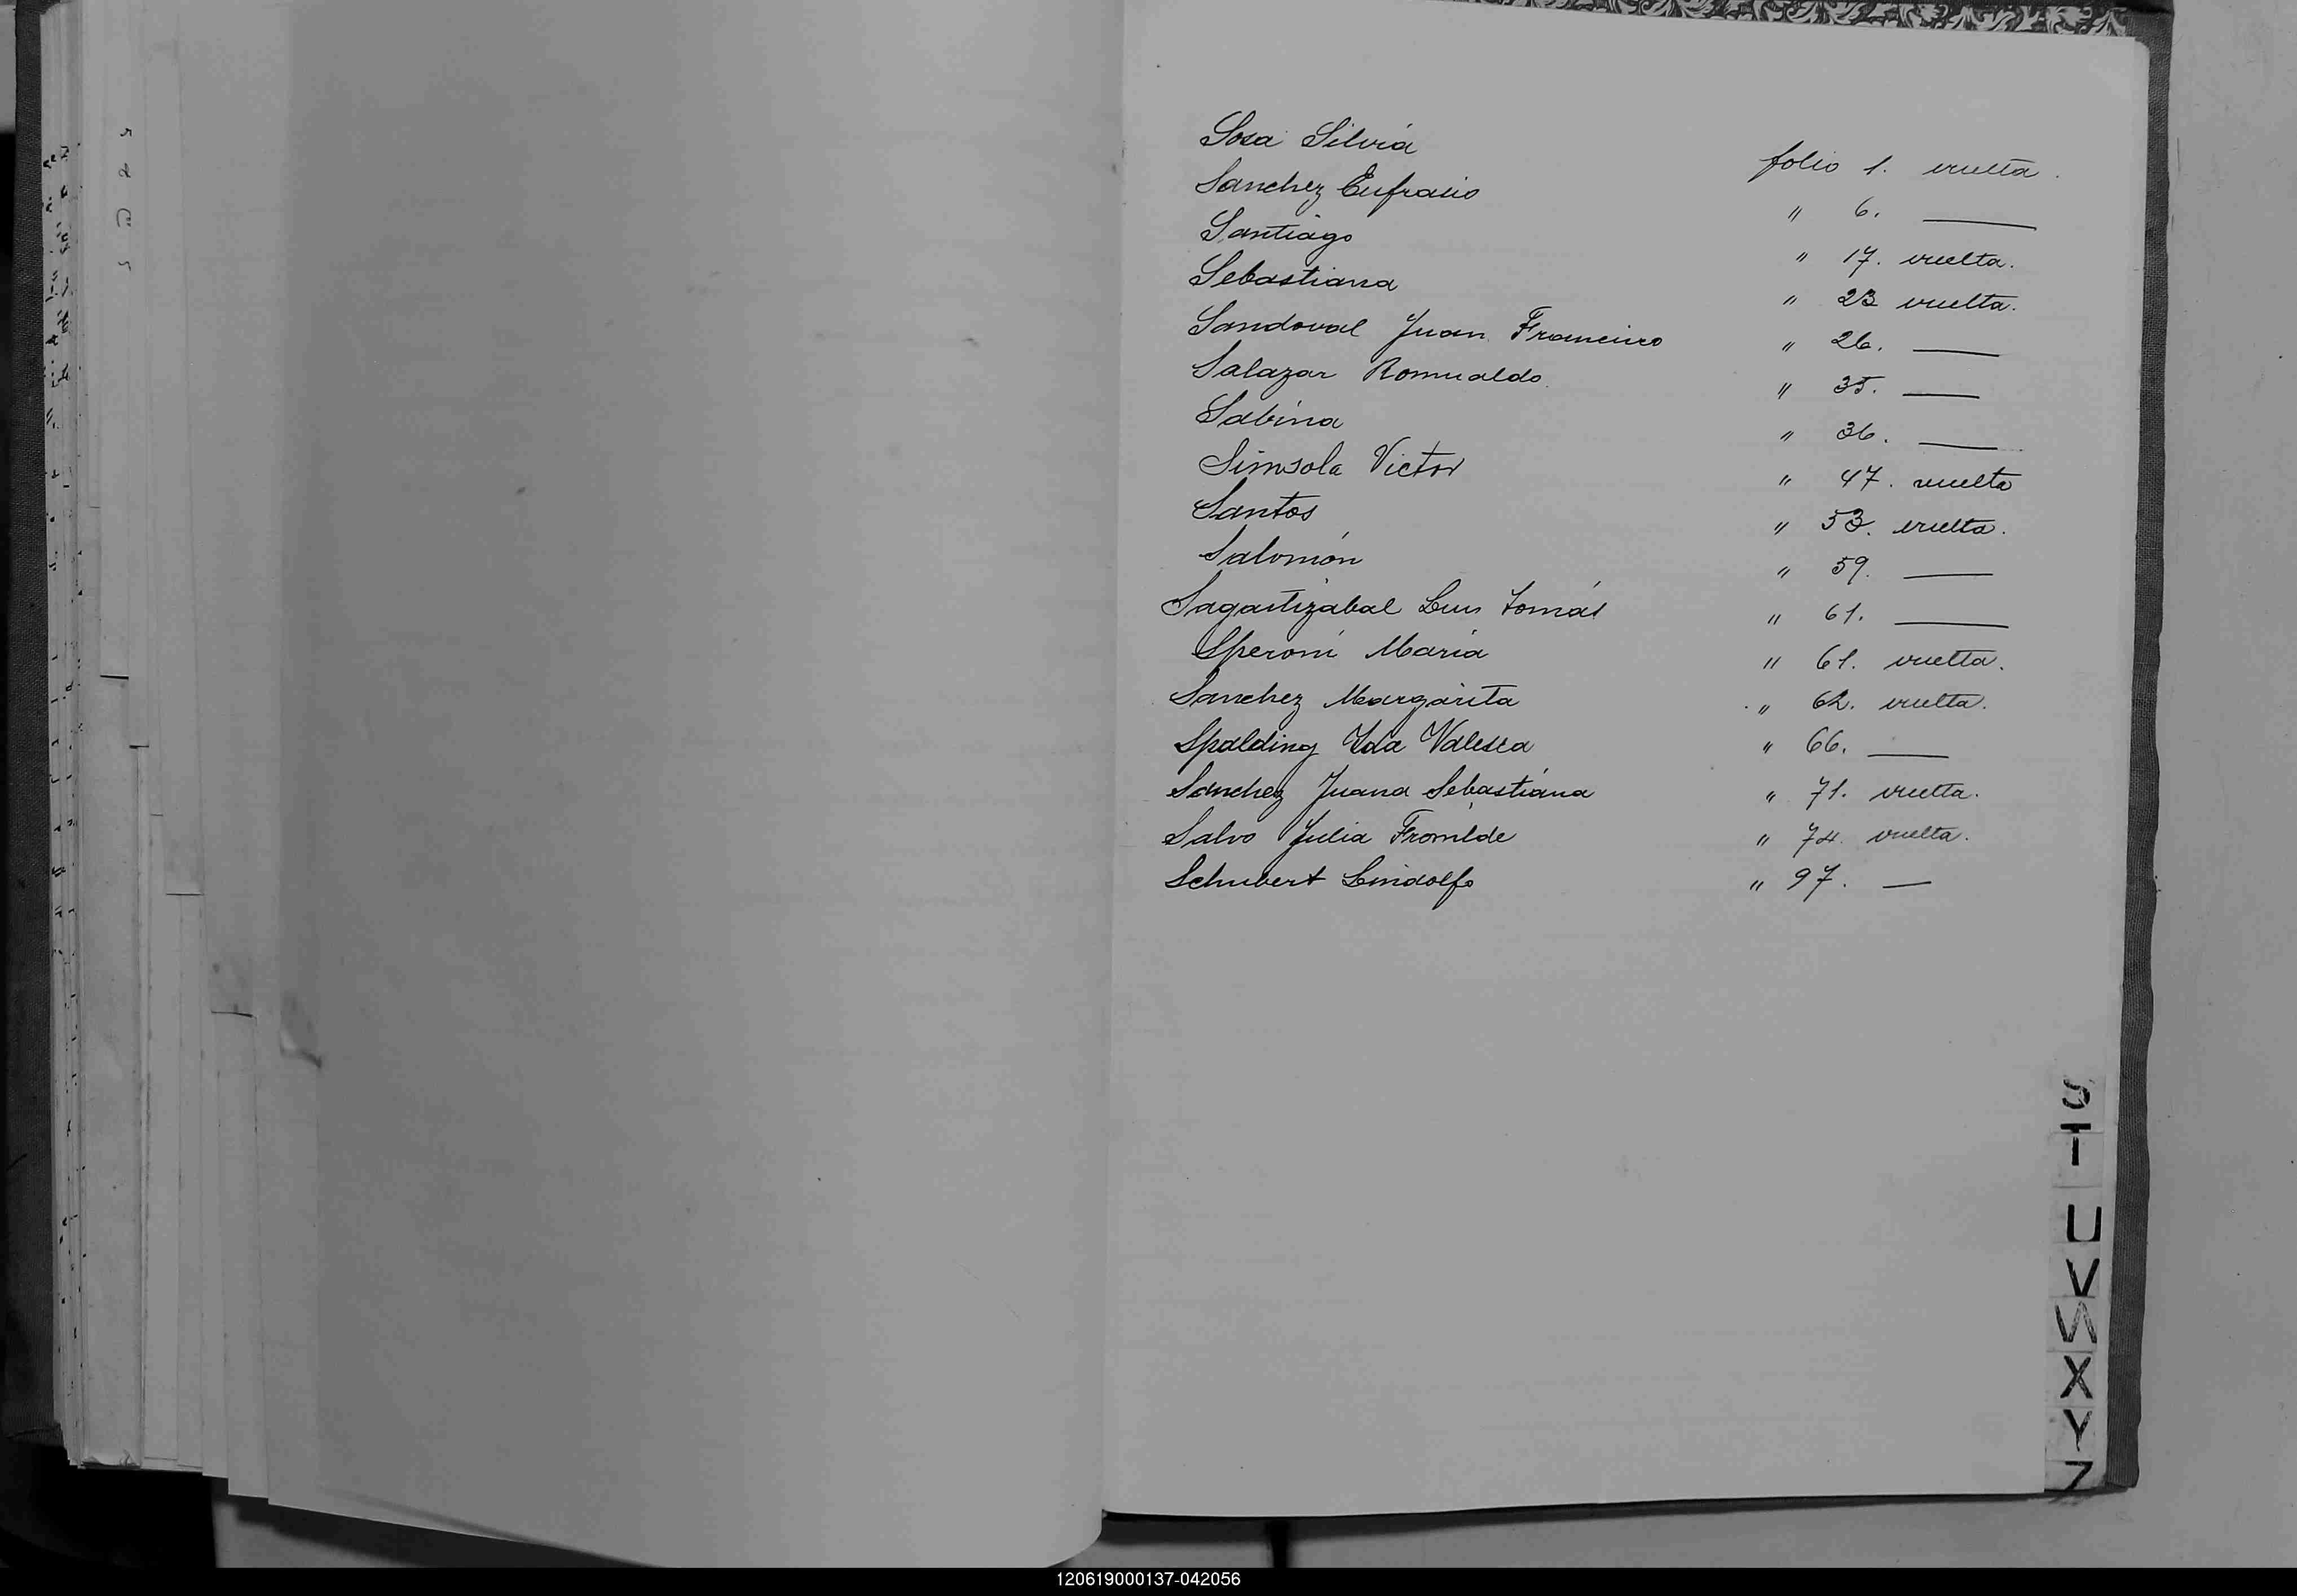 Sosa Silvia folio 1. vuelta.
Sanchez Eufracio " 6. ——
Santiago " 17. vuelta.
Sebastiana " 23 vuelta.
Sandoval Juan Francisco " 26. ——
Salazar Romualdo. " 35. ——
Sabina " 36. ——
Simsola Victor " 47. vuelta
Santos " 53. vuelta.
Salomón " 59. ——
Sagastizabal Luis Tomás " 61. ——
Speroni Maria " 61. vuelta.
Sanchez Margarita " 62. vuelta.
Spalding Ida Valesca " 66. ——
Sanchez Juana Sebastiana " 71. vuelta.
Salvo Julia Fromilde " 74. vuelta.
Schubert Lindolfo " 97. —
S
T
U
V
W
X
Y
Z
120619000137-042056